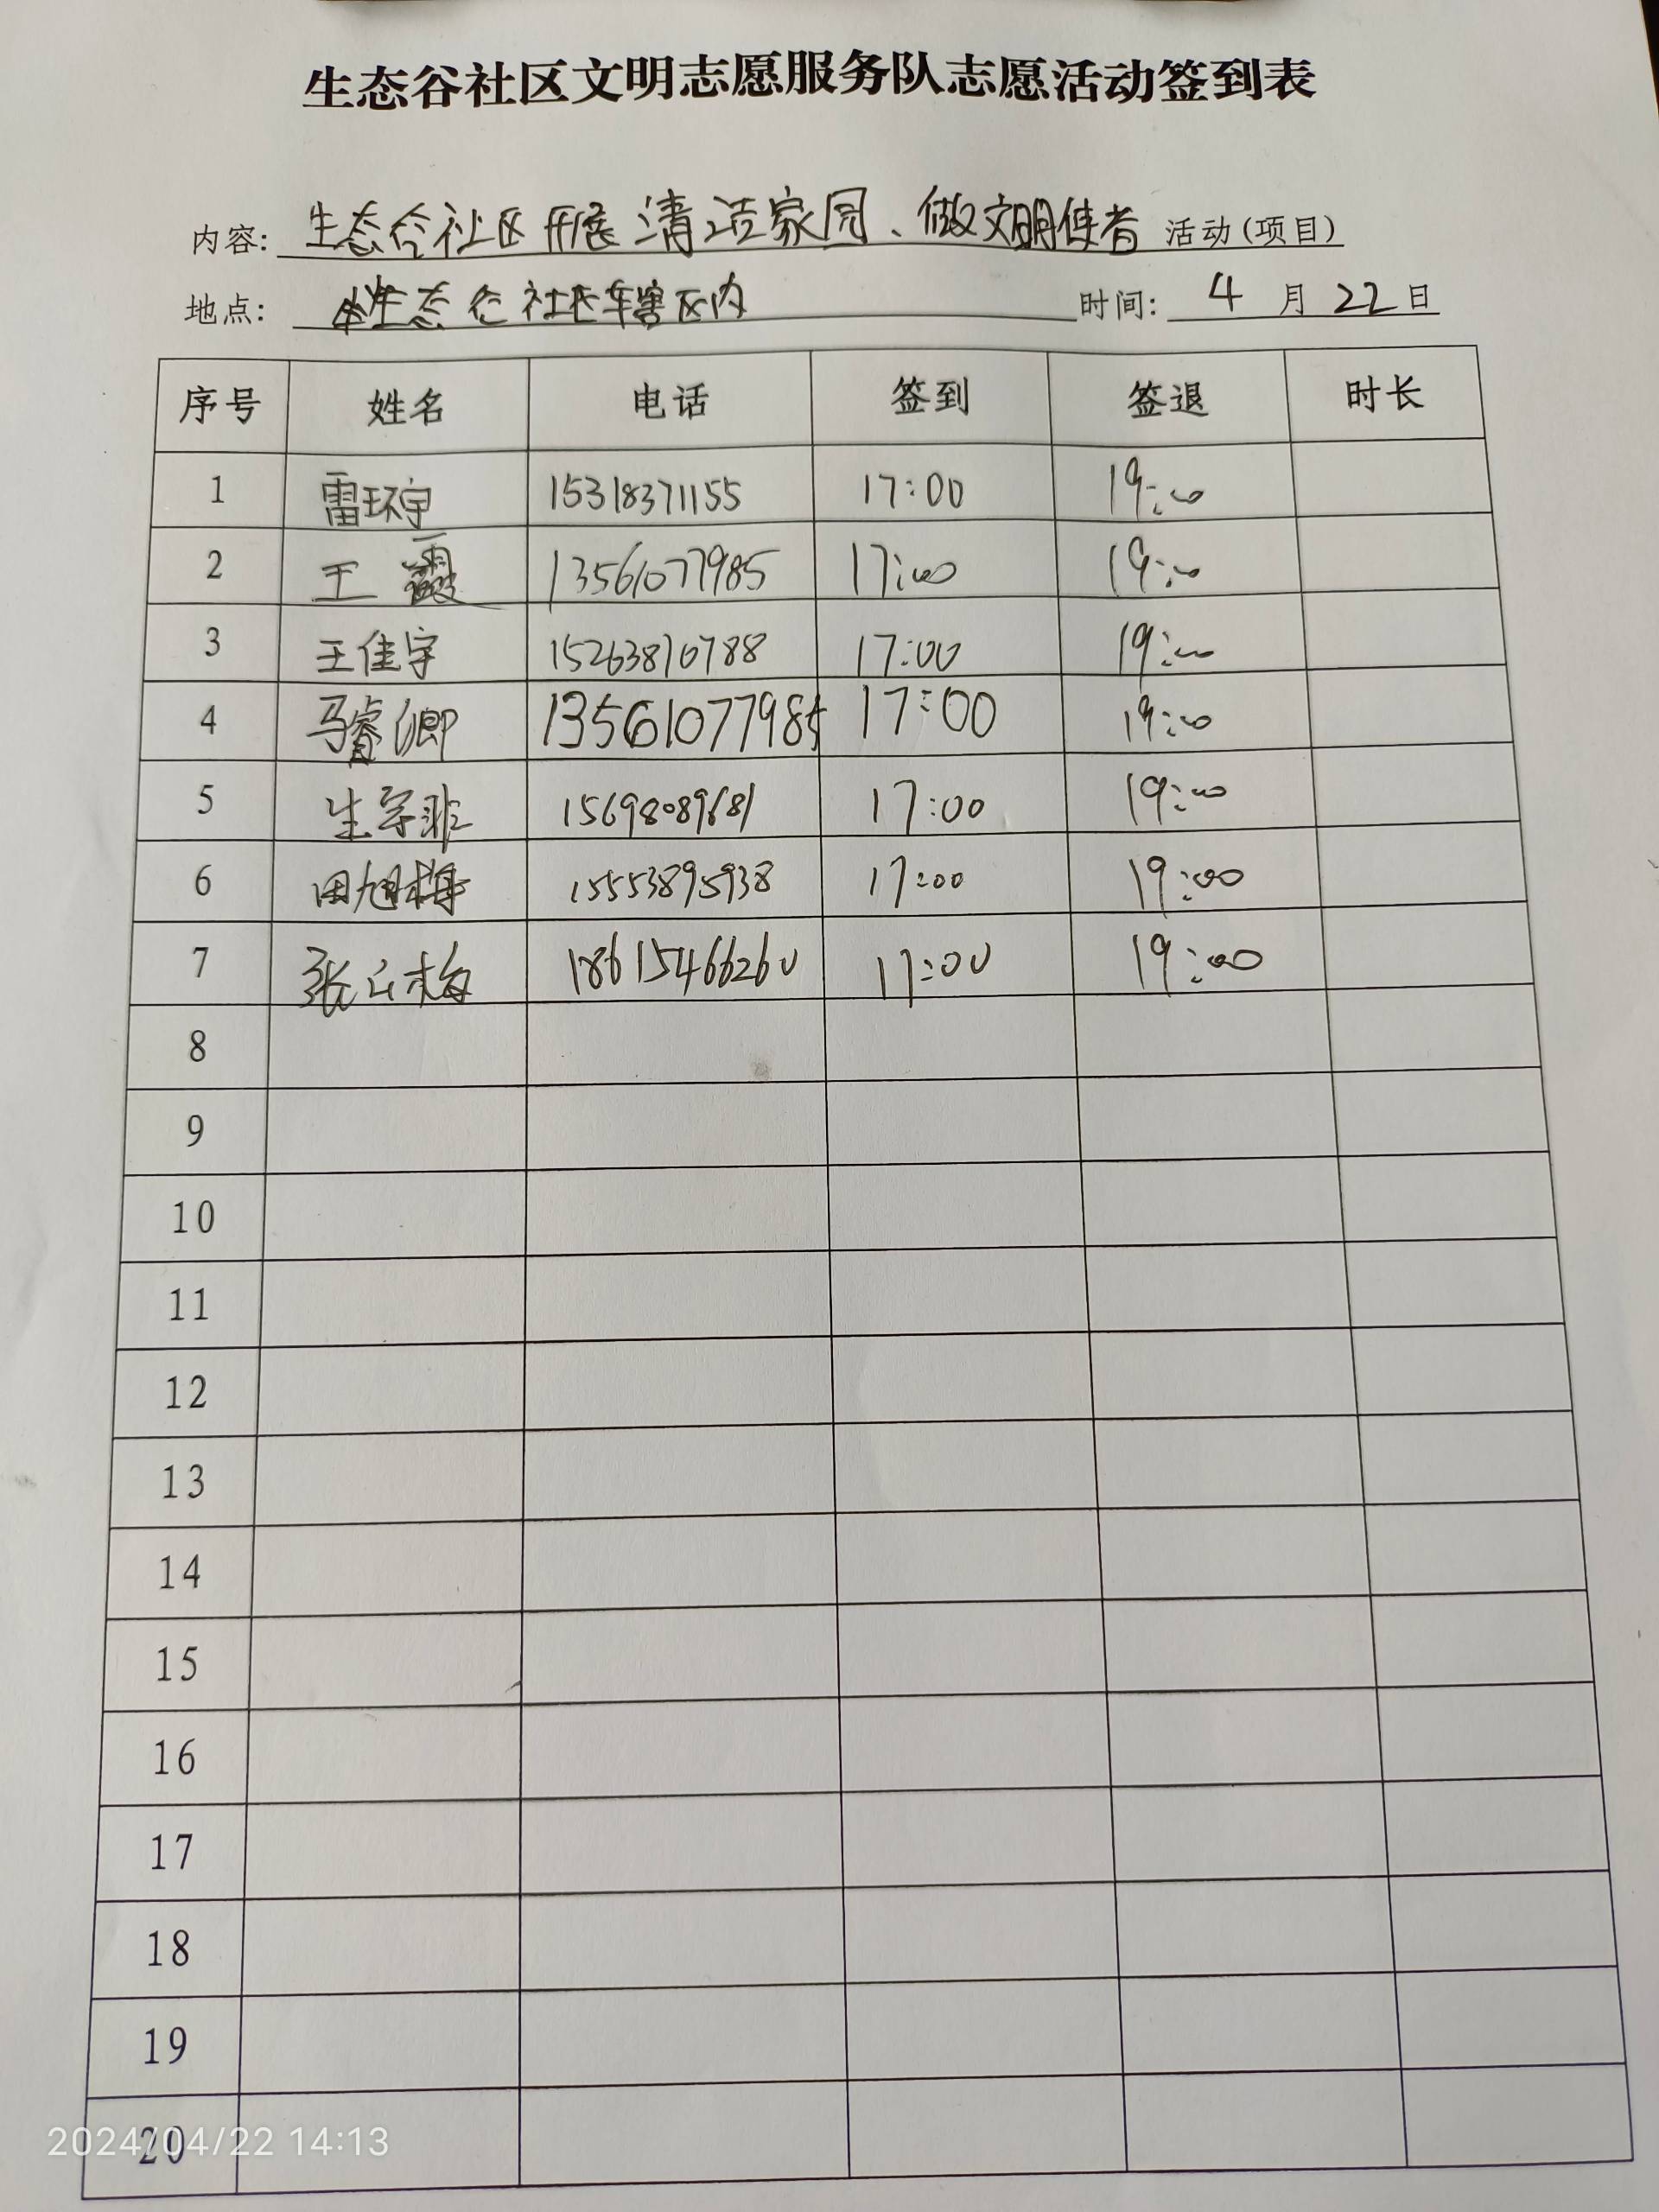 生态谷社区文明志愿服务队志愿活动签到表
内容: 生态谷社区开展清洁家园、做文明使者 活动(项目)
地点: 生态谷社区辖区内 时间: 4 月 22 日
序号 姓名 电话 签到 签退 时长
1 雷环宇 15318371155 17:00 19:00
2 王霞 13561077985 17:00 19:00
3 王佳宇 15263810788 17:00 19:00
4 马睿卿 13561077985 17:00 19:00
5 生宇菲 15698089681 17:00 19:00
6 田旭梅 15553895938 17:00 19:00
7 张云梅 18615466260 17:00 19:00
8
9
10
11
12
13
14
15
16
17
18
19
20
2024/04/22 14:13